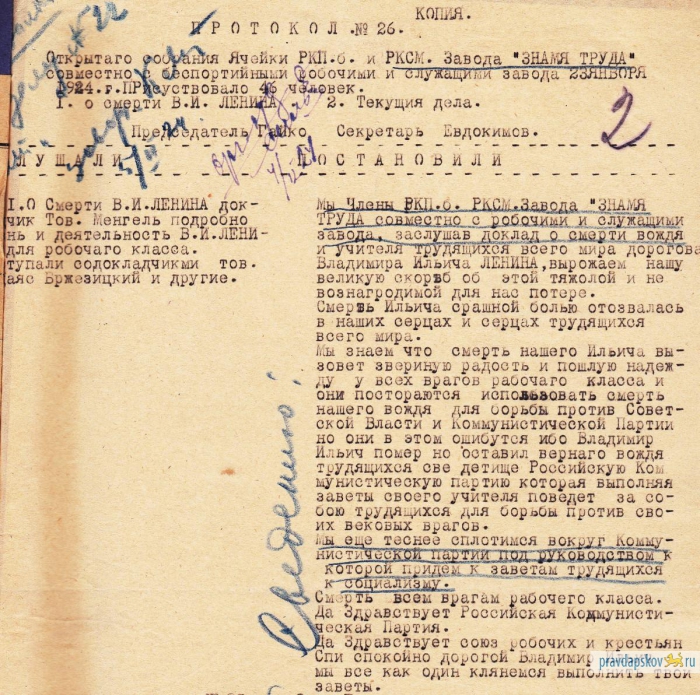 КОПИЯ.
ПРОТОКОЛ.№ 26.
Открытаго собрания Ячейки РКП.б. и РКСМ. Завода "ЗНАМЯ ТРУДА"
совместно с беспортийными робочими и служащими завода 23ЯНВОРЯ
1924.г.ПРисуствовало 46 человек.
I. о смерти В.И. ЛЕНИНА 2. Текущия дела.
2
Председатель Гайко Секретарь Евдокимов.
ЛУШАЛИ ПОСТАНОВИЛИ
I.О Смерти В.И.ЛЕНИНА док-
чик Тов. Менгель подробно
нь и деятельность В.И.ЛЕНИ-
для робочаго класса.
тупали содокладчикми тов.
аяс Бржезицкий и другие.
Мы Члены РКП.б. РКСМ.Завода "ЗНАМЯ
ТРУДА совместно с робочими и служащими
завода, заслушав доклад о смерти вождя
и учителя трудящихся всего мира дорогова
Владимира Ильича ЛЕНИНА,вырожаем нашу
великую скорбь об этой тяжолой и не
вознагродимой для нас потере.
Смерть Ильича срашной болью отозвалась
в наших серцах и серцах трудящихся
всего мира.
Мы знаем что смерть нашего Ильича вы-
зовет звериную радость и пошлую надеж-
ду у всех врагов рабочаго класса и
они посторатся использовать смерть
нашего вождя для борьбы против Совет-
ской Власти и Коммунистической Партии
но они в этом ошибутся ибо Владимир
Ильич помер но оставил вернаго вождя
трудящихся све детище Российскую Ком
мунистическую партию которая выполняя
заветы своего учителя поведет за со-
бою трудящихся для борьбы против сво-
их вековых врагов.
Мы еще теснее сплотимся вокруг Комму-
нистической партии под руководством к
которой придем к заветам трудящихся
к социализму.
Смерть всем врагам рабочего класса.
Да Здравствует Российская Комунисти-
ческая Партия.
Да Здравствует союз робочих и крестьян
Спи спокойно дорогой Владимир Ильич
мы все как один клянемся выполнить твои
заветы.
Сведению!
pravdapskov.ru